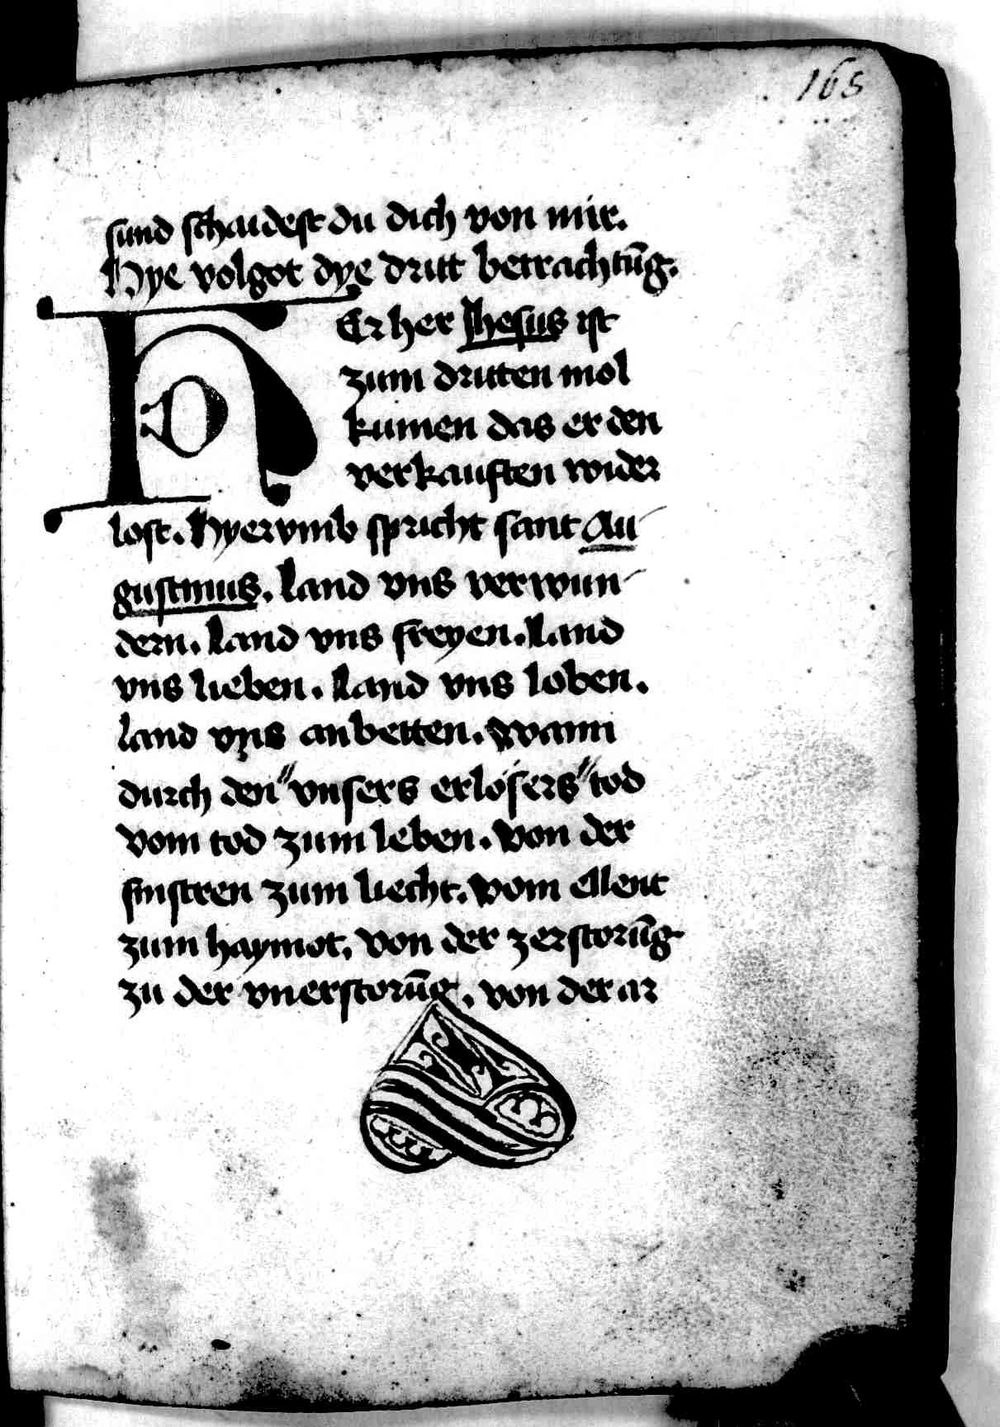 165
sund schaidest du dich von mir.
Hye volgot dye dritt betrachtūg.
HEr her Jhesus ist
zum dritten mol
kumen das er den
verkauften wider
lost. Hyervmb spricht sant Au
gustinus. Land vns verwun
dern. Land vns freyen. Land
vns lieben. Land vns loben.
land vns anbetten. Wann
durch den "vnsers erlosers" tod
vom tod zum leben. Von der
finstren zum liecht. Vom ellent
zum haymot. Von der zerstorūg
zu der vnerstorūg. von der ar